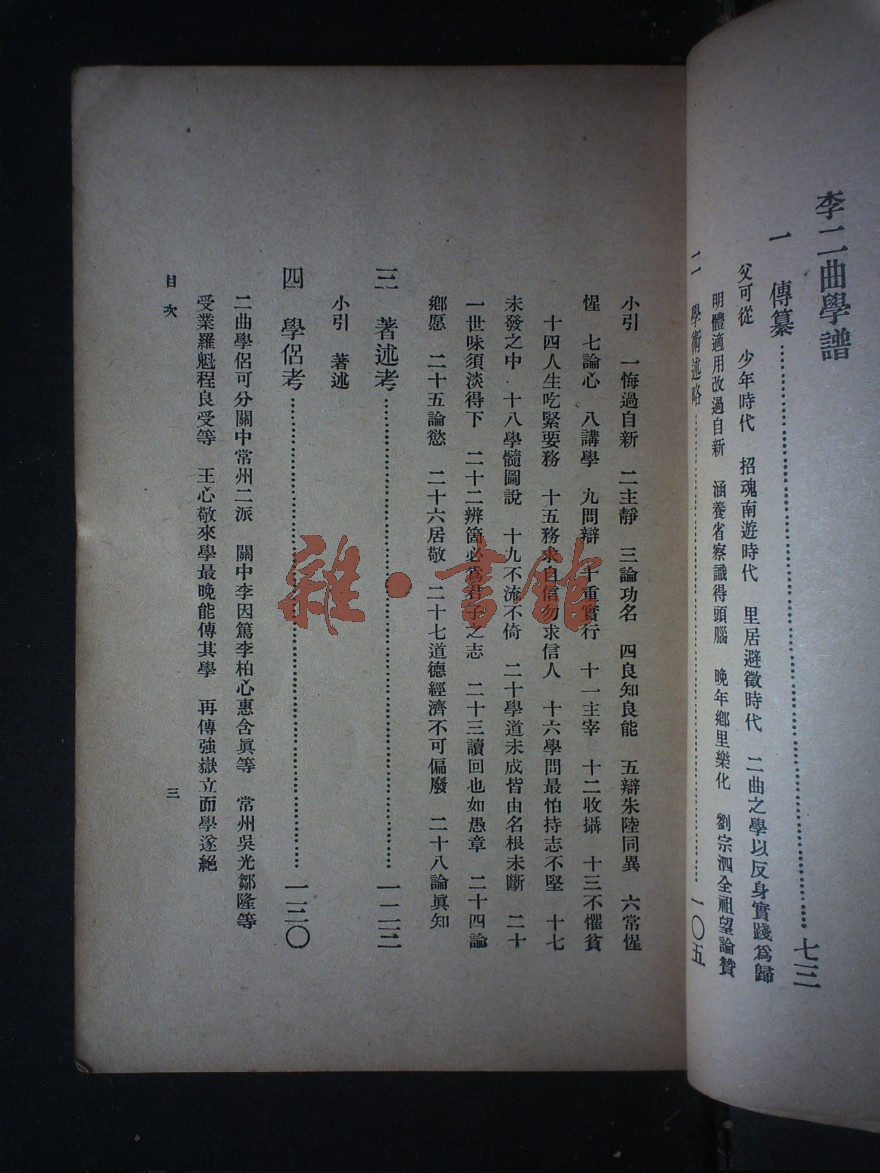 李二曲學譜
一　傳纂……七三
父可從　少年時代　招魂南遊時代　里居避徵時代　二曲之學以反身實踐爲歸
明體適用改過自新　涵養省察識得頭腦　晚年鄉里樂化　劉宗泗全祖望論贊
二　學術述略……一〇五
小引　一悔過自新　二主靜　三論功名　四良知良能　五辯朱陸同異　六常惺
惺　七論心　八講學　九問辯　十重實行　十一主宰　十二收攝　十三不懼貧
十四人生吃緊要務　十五務求自信勿求信人　十六學問最怕持志不堅　十七
未發之中　十八學髓圖說　十九不流不倚　二十學道未成皆由名根未斷　二十
一世味須淡得下　二十二辨箇必爲君子之志　二十三讀回也如愚章　二十四論
鄉愿　二十五論慾　二十六居敬　二十七道德經濟不可偏廢　二十八論眞知
三　著述考……一二三
小引　著述
四　學侶考……一三〇
二曲學侶可分關中常州二派　關中李因篤李柏心惠含眞等　常州吳光鄒隆等
受業羅魁程良受等　王心敬來學最晚能傳其學　再傳強嶽立而學遂絕
目次　三
雜·書館